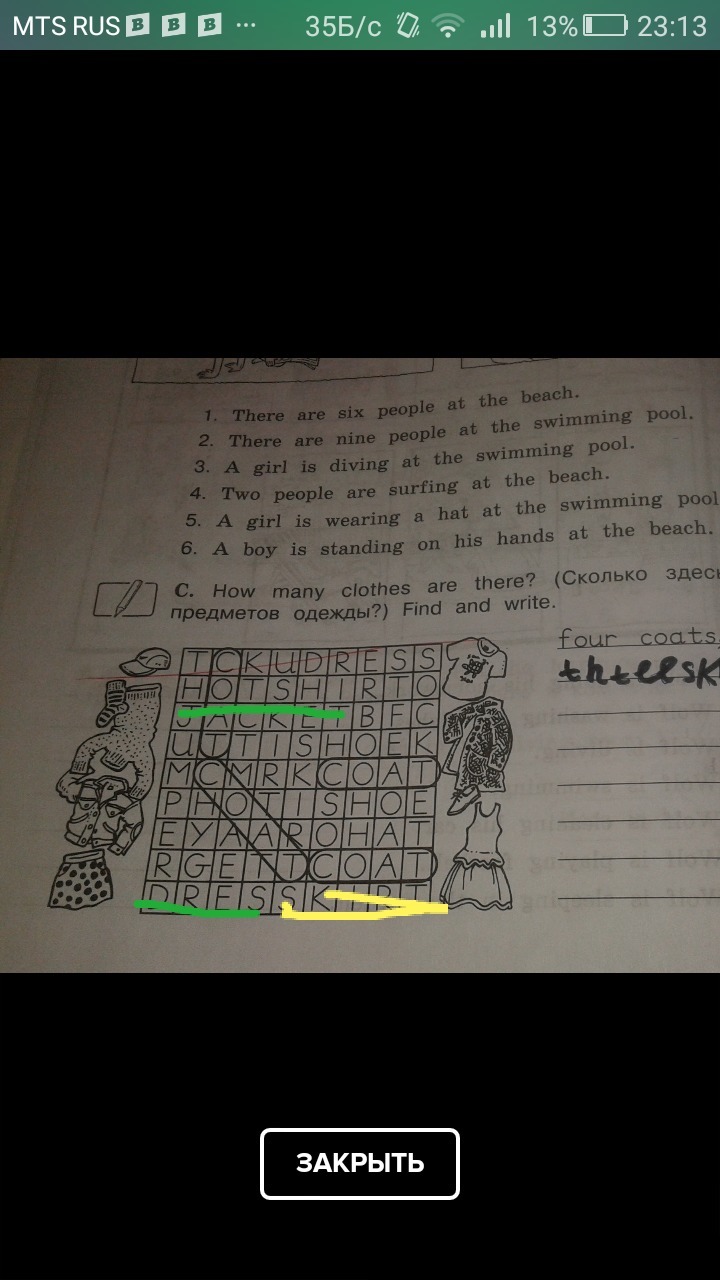 MTS RUS B B B ... 35Б/с 13% 23:13
1. There are six people at the beach.
2. There are nine people at the swimming pool.
3. A girl is diving at the swimming pool.
4. Two people are surfing at the beach.
5. A girl is wearing a hat at the swimming pool
6. A boy is standing on his hands at the beach.
C. How many clothes are there? (Сколько здесь
предметов одежды?) Find and write.
four coats,
T C K U D R E S S
H O T S H I R T O
J A C K E T B F C
U T T I S H O E K
M C M R K C O A T
P H O T I S H O E
E Y A A R O H A T
R G E T T C O A T
D R E S S K I R T
ЗАКРЫТЬ